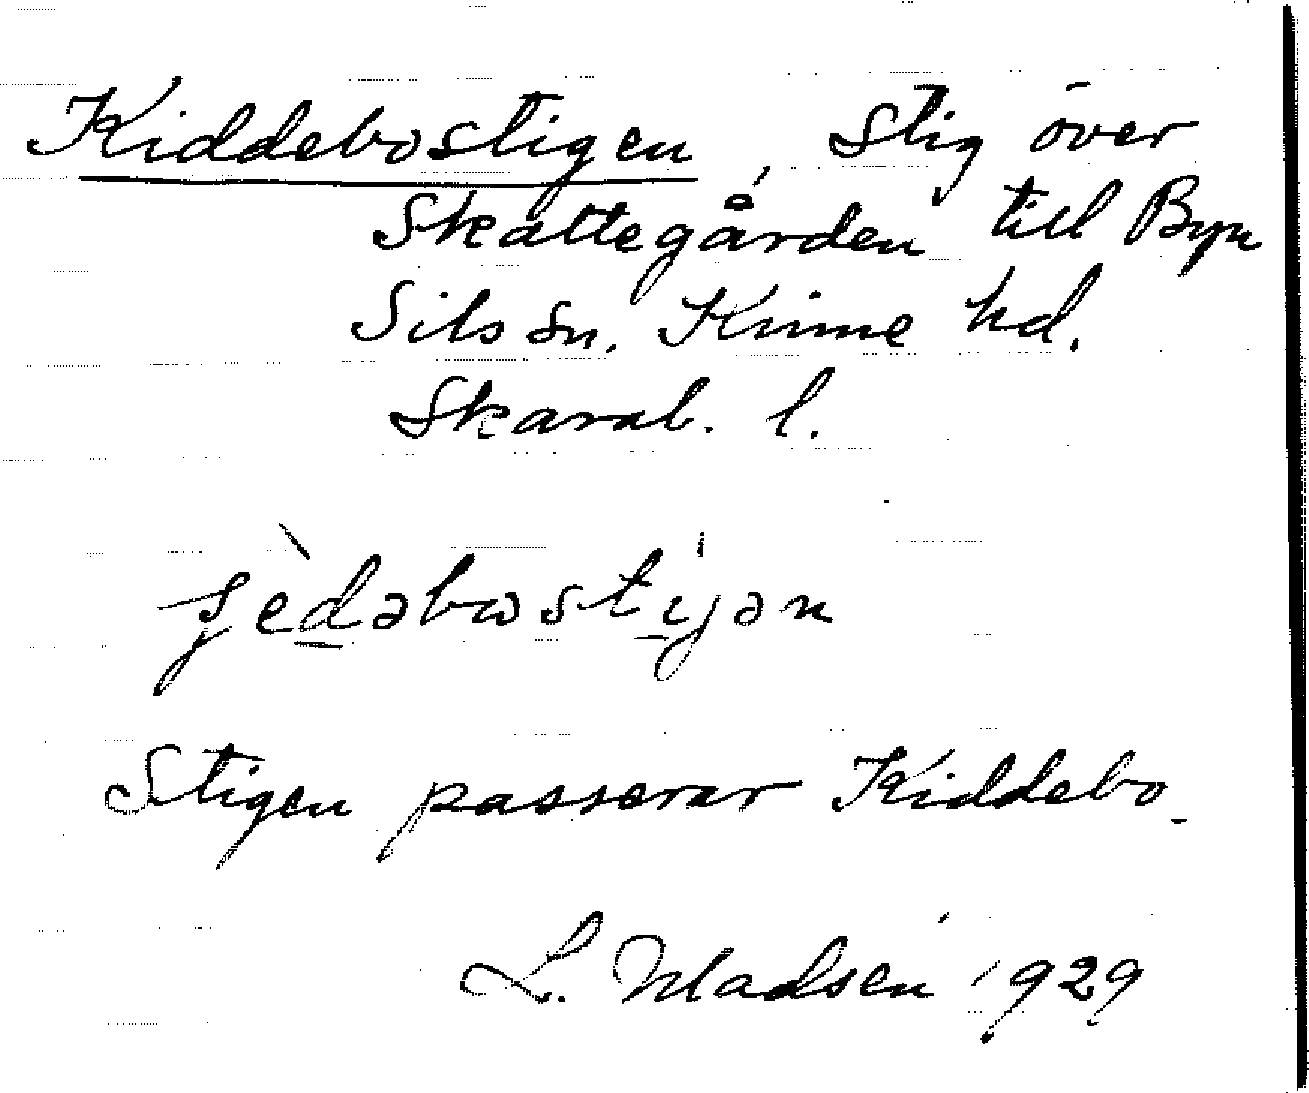 Kiddebostigen, Stig över
Skattegården till Byn
Sils sn. Kinne hd.
Skarab. l.
Stigen passerar Kiddebo.
L. Madsen 1929